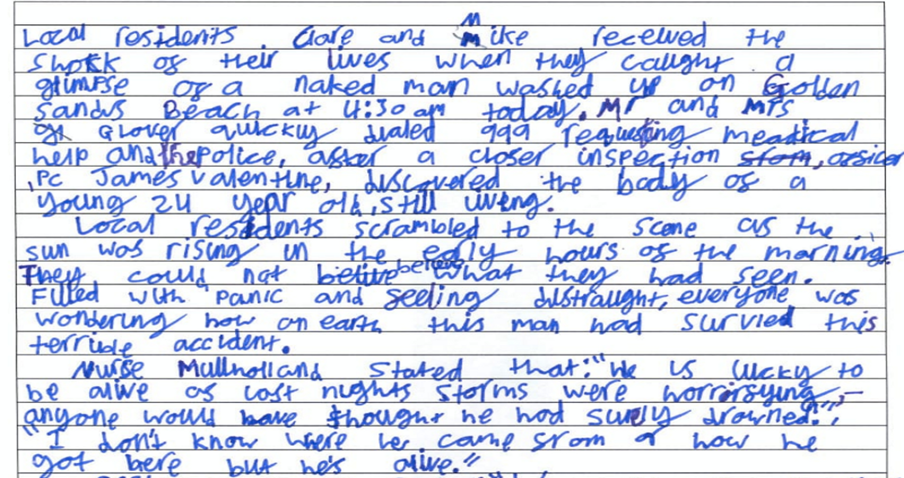 Local residents Clare and Mike received the
shokk of their lives when they caught a
glimpse of a naked man washed up on Golden
sands Beach at 4:30 am today. Mr and Mrs
Glover quickly dialed 999 requesting meadical
help and the police, after a closer inspection from, officer
, PC James Valentine, discovered the body of a
young 24 year old, still living.
Local residents scrambled to the scene as the
sun was rising in the early hours of the morning.
They could not believe what they had seen.
Filled with panic and feeling distraught, everyone was
wondering how on earth this man had survied this
terrible accident.
Nurse Mullholland stated that: "He is lucky to
be alive as last nights storms were horrifying,-
anyone would have thought he had surely drowned.",
"I don't know where he came from or how he
got here but he's alive."